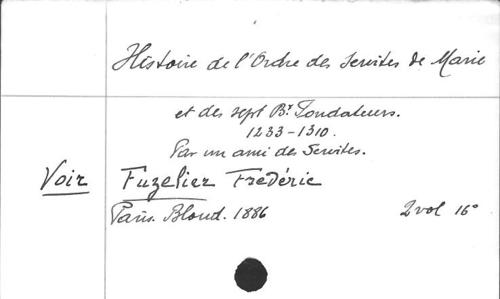 Histoire de l'Ordre des Servites de Marie
et des sept Bx Fondateurs.
1233-1310.
Par un ami des Servites.
Voir Fuzelier Frédéric
Paris. Bloud. 1886 2 vol 16°